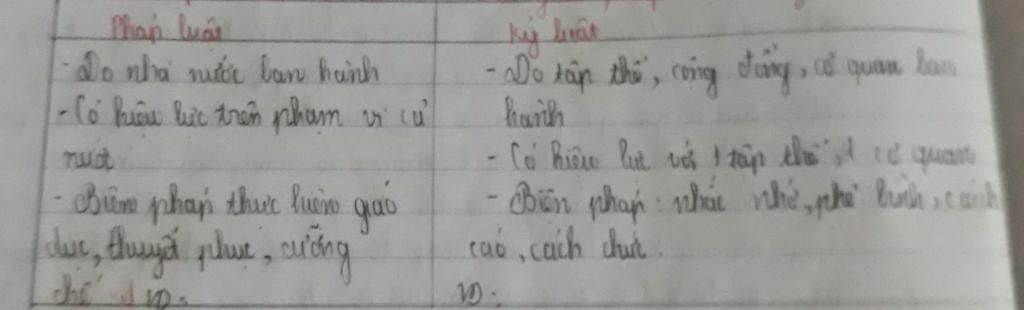 Pháp luật
- Do nhà nước ban hành
- Có hiệu lực trên phạm vi cả
nước
- Biện pháp thực hiện giáo
dục, thuyết phục, cưỡng
chế
VD:
Kỷ luật
- Do tập thể, cộng đồng, cơ quan ban
hành
- Có hiệu lực với 1 tập thể, 1 cơ quan
- Biện pháp: nhắc nhở, phê bình, cảnh
cáo, cách chức.
VD: